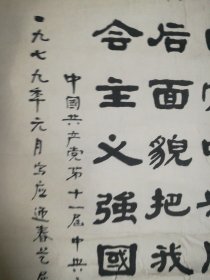 后面貌把我
会主义強國
中國共产党第十一届中共
一九七九年元月写应迎春艺